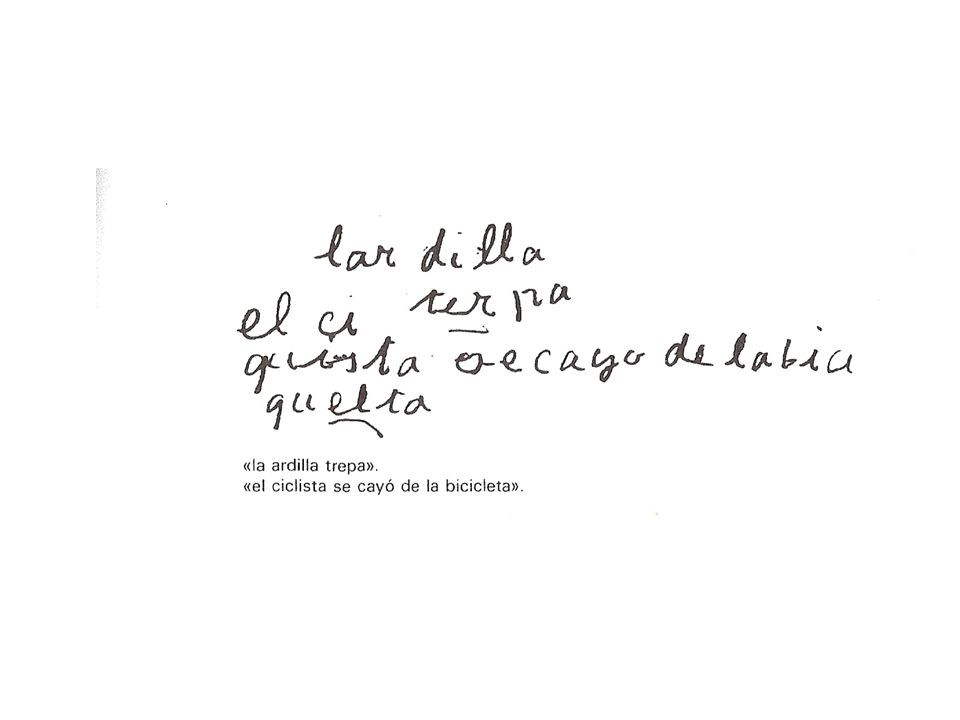 lar dilla
ter pa
el çi
quista se cayo de la bici
quelta
«la ardilla trepa».
«el ciclista se cayó de la bicicleta».